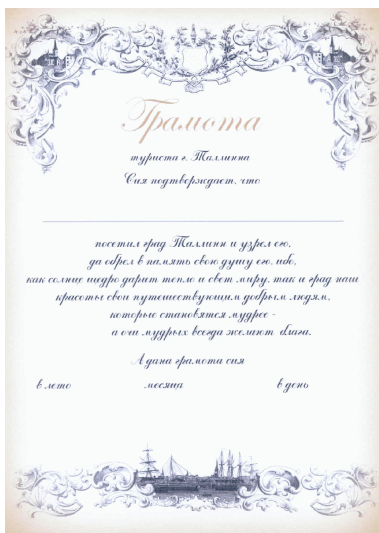 Грамота
туриста г. Таллинна
Сия подтверждает, что
посетил град Таллинн и узрел его,
да обрел в память свою душу его, ибо,
как солнце щедро дарит тепло и свет миру, так и град наш
красоты свои путешествующим добрым людям,
которые становятся мудрее -
а очи мудрых всегда желают блага.
А дана грамота сия
в лето месяца в день